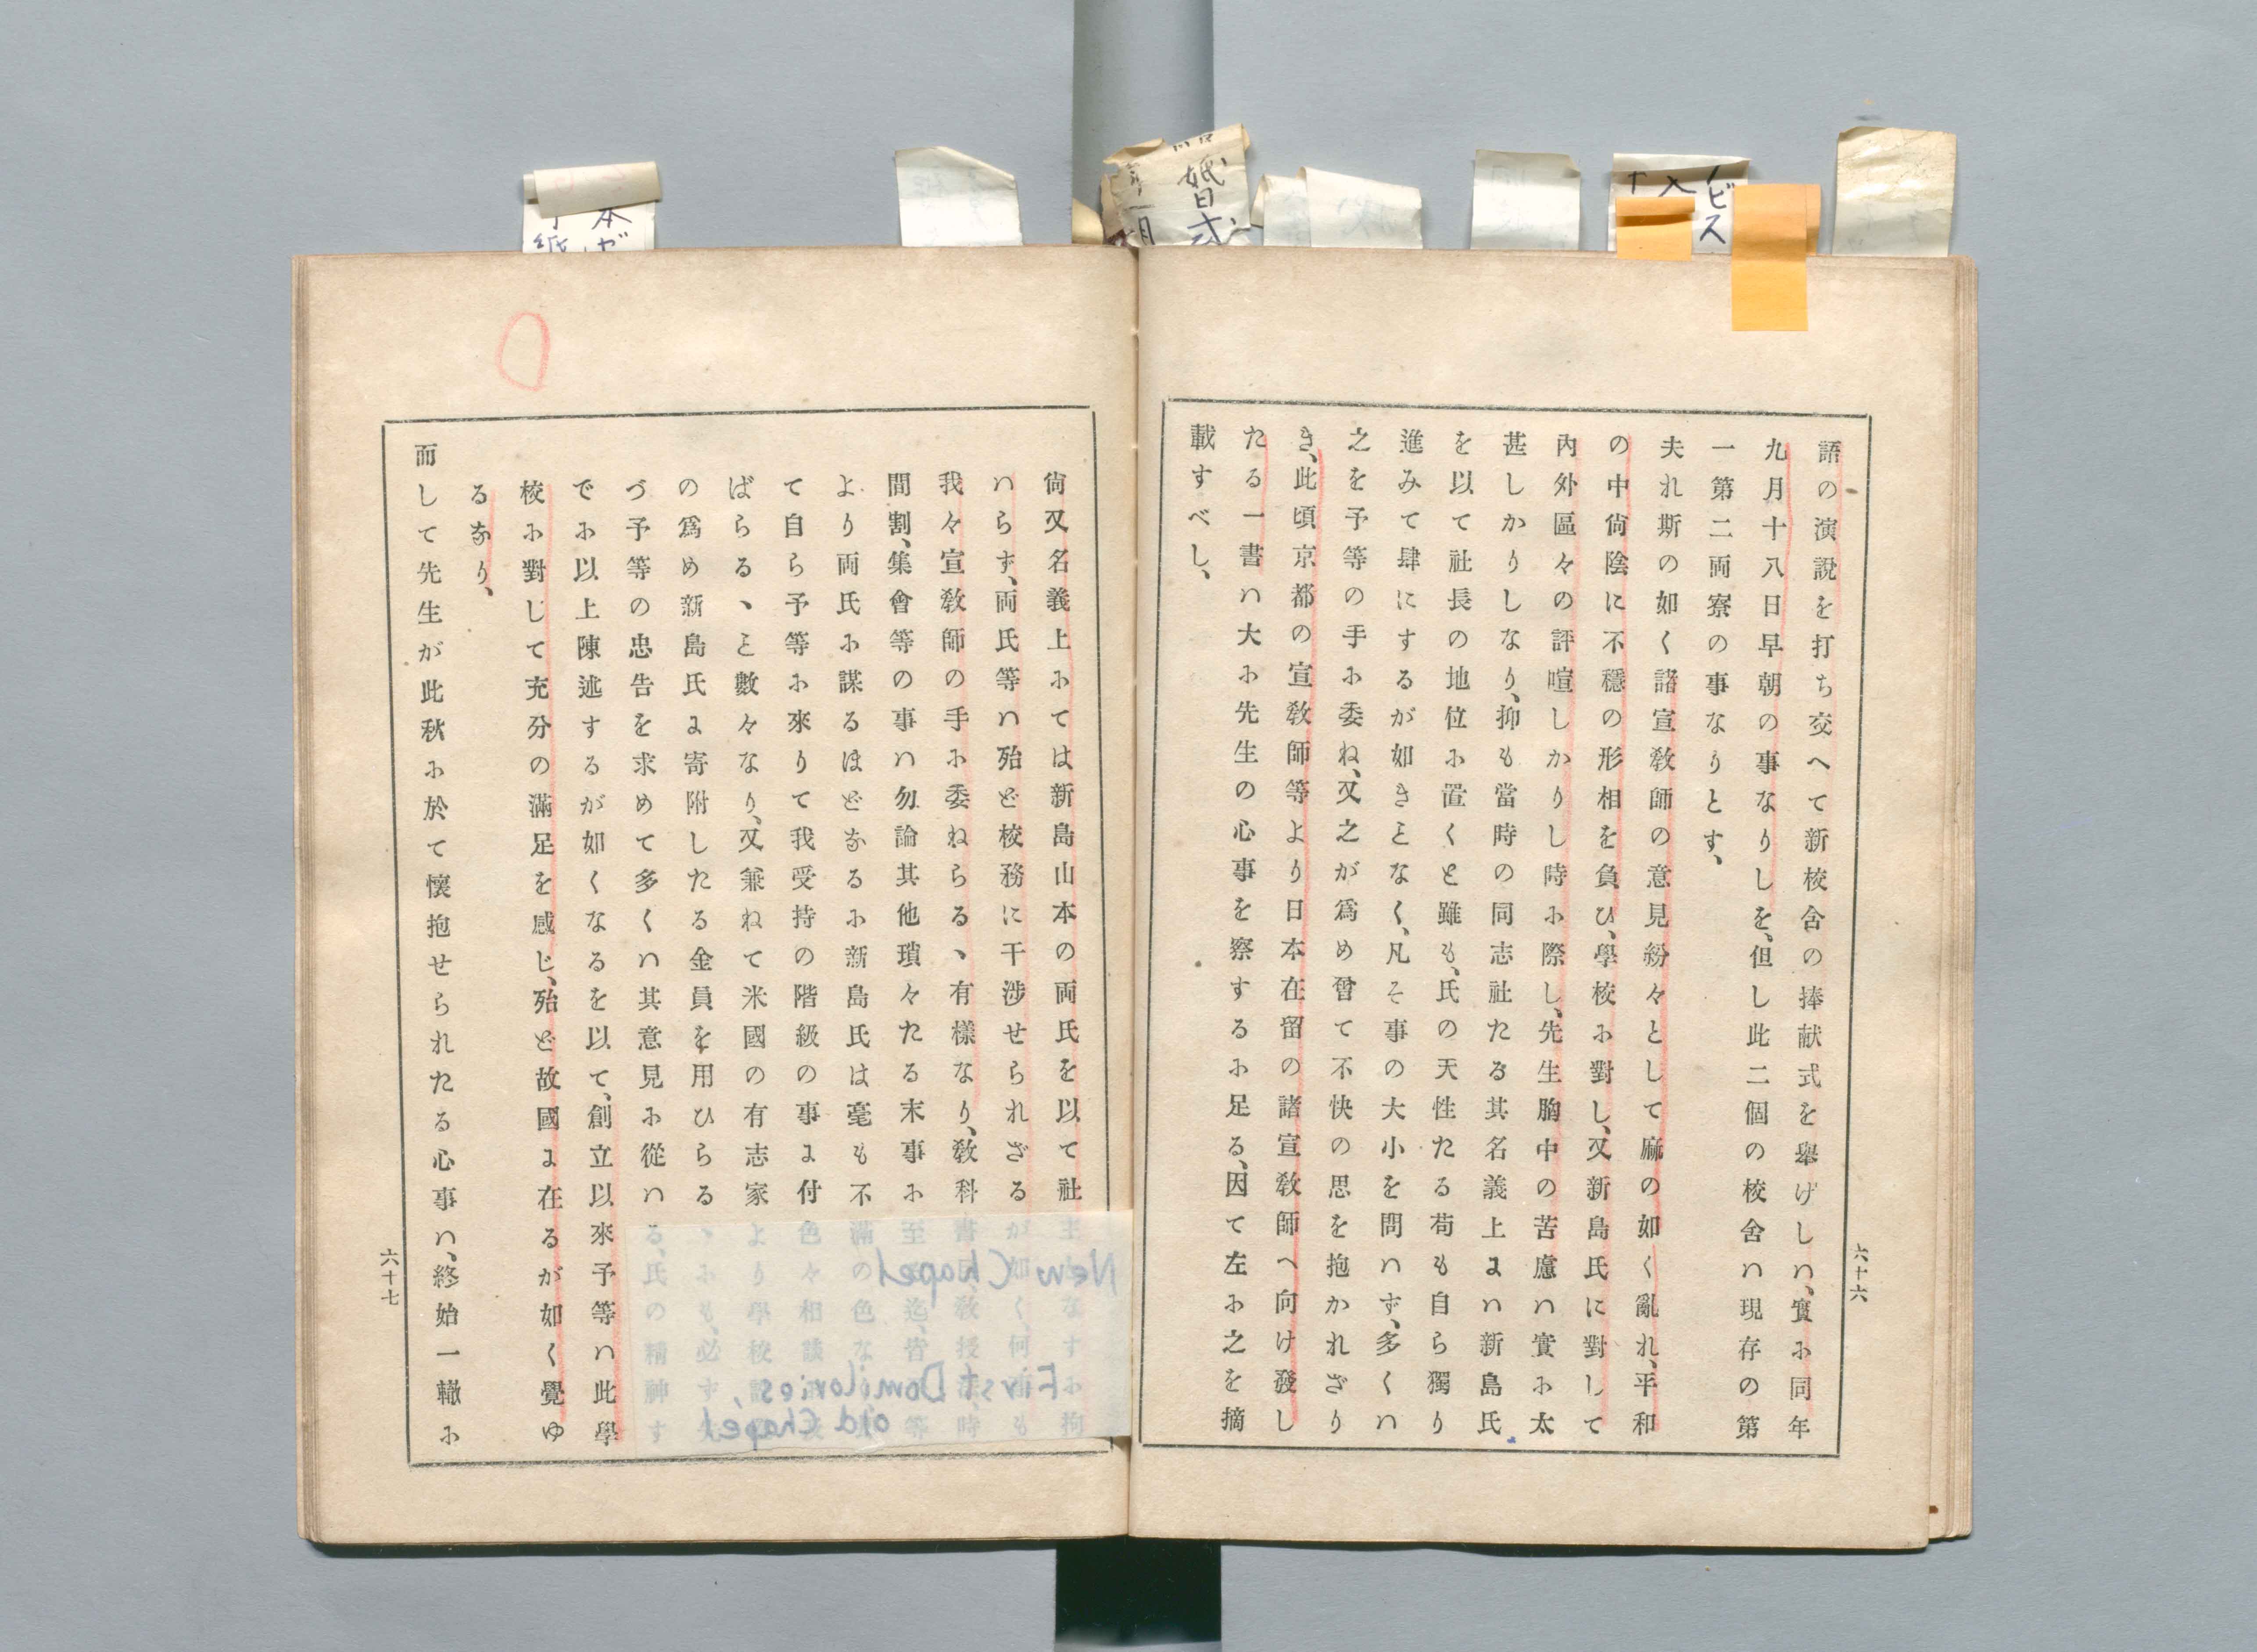 婚式
ビス
六十六
語の演説を打ち交へて新校舍の捧献式を舉げしハ、實に同年
九月十八日早朝の事なりしを、但し此二個の校舍ハ現存の第
一第二両寮の事なりとす、
夫れ斯の如く諸宣敎師の意見紛々として麻の如く亂れ、平和
の中尙陰に不穩の形相を負ひ、學校に對し、又新島氏に對して
內外區々の評喧しかりし時に際し、先生胸中の苦慮ハ實に太
甚しかりしなり、抑も當時の同志社たる其名義上にハ新島氏
を以て社長の地位に置くと雖も、氏の天性たる苟も自ら獨り
進みて肆にするが如きヿなく、凡そ事の大小を問ハず、多くハ
之を予等の手に委ね、又之が爲め曾て不快の思を抱かれざり
き、此頃京都の宣敎師等より日本在留の諸宣敎師へ向け發し
たる一書ハ大に先生の心事を察するに足る、因て左に之を摘
載すべし、
尙又名義上にては新島山本の両氏を以て社主となすに拘
ハらす、両氏等ハ殆ど校務に干渉せられざるが如く、何も
我々宣敎師の手に委ねらるゝ有樣なり、敎科書 敎授 時
間割、集會等の事ハ勿論其他瑣々たる末事に至 迄、皆 等
より両氏に謀るほどなるに新島氏は毫も不滿の色な
て自ら予等に來りて我受持の階級の事に付色々相談
ばらるゝヿ數々なり、又兼ねて米國の有志家より學校
の爲め新島氏に寄附したる金員を用ひらるゝにも、必ず
づ予等の忠告を求めて多くハ其意見に從ハる、氏の精神す
でに以上陳述するが如くなるを以て、創立以來予等ハ此學
校に對して充分の滿足を感じ、殆ど故國に在るが如く覺ゆ
るなり、
而して先生が此秋に於て懷抱せられたる心事ハ、終始一轍に
六十七
New Chapel
First Domilories,
old Chapel